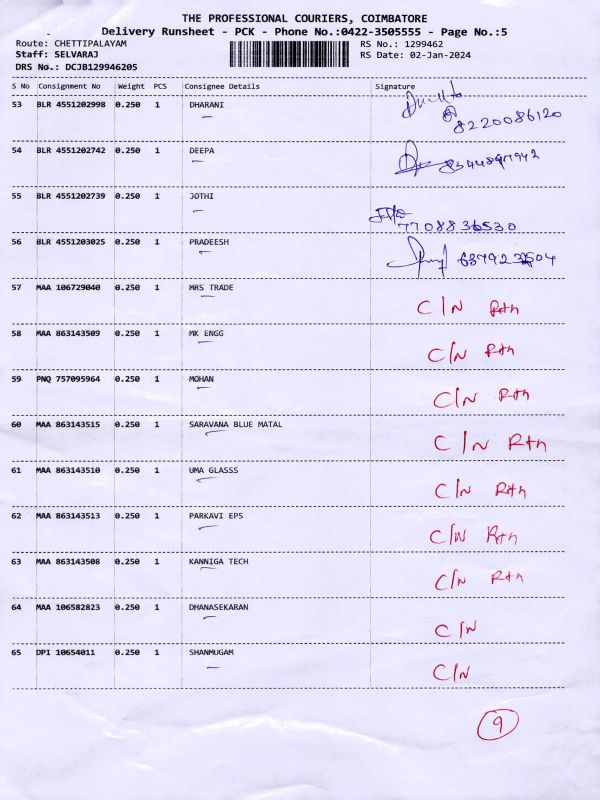 THE PROFESSIONAL COURIERS, COIMBATORE
Delivery Runsheet - PCK - Phone No.:0422-3505555 - Page No.:5
Route: CHETTIPALAYAM RS No.: 1299462
Staff: SELVARAJ RS Date: 02-Jan-2024
DRS No.: DCJB129946205
S No Consignment No Weight PCS Consignee Details Signature
53 BLR 4551202998 0.250 1 DHARANI
8220086120
54 BLR 4551202742 0.250 1 DEEPA
55 BLR 4551202739 0.250 1 JOTHI
56 BLR 4551203025 0.250 1 PRADEESH
57 MAA 106729040 0.250 1 MRS TRADE C/N Rtn
58 MAA 863143509 0.250 1 MK ENGG C/N Rtn
59 PNQ 757095964 0.250 1 MOHAN C/N Rtn
60 MAA 863143515 0.250 1 SARAVANA BLUE MATAL C/N Rtn
61 MAA 863143510 0.250 1 UMA GLASSS C/N Rtn
62 MAA 863143513 0.250 1 PARKAVI EPS C/N Rtn
63 MAA 863143508 0.250 1 KANNIGA TECH C/N Rtn
64 MAA 106582823 0.250 1 DHANASEKARAN C/N
65 DPI 10654011 0.250 1 SHANMUGAM C/N
9